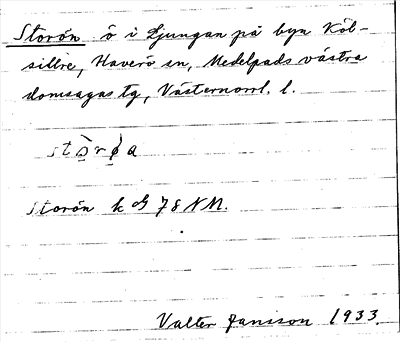 Storön ö i Ljungan på byn Köl-
sillre, Haverö sn, Medelpads västra
domsagas tg, Västernorrl. l.
Storön k bl 78 NM.
Valter Jansson 1933.